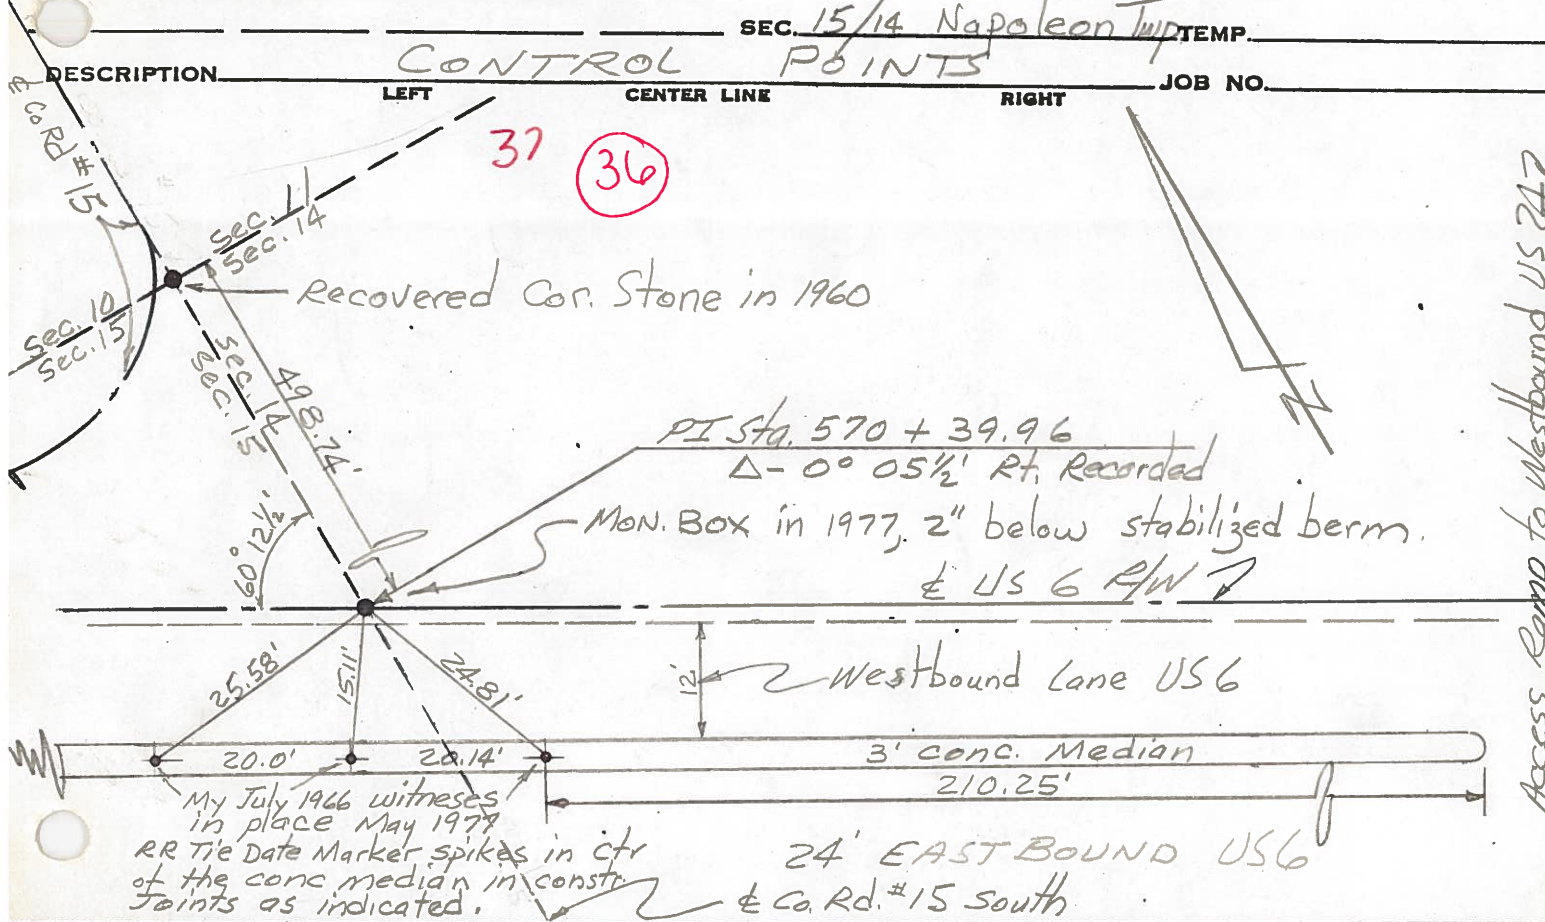 SEC. 15/14 Napoleon Twp TEMP.
DESCRIPTION CONTROL POINTS JOB NO.
LEFT CENTER LINE RIGHT
37 36
℄ Co Rd #15
Sec. 11
Sec. 14
Recovered Cor. Stone in 1960
Sec. 10
Sec. 15
Sec. 14
Sec. 15
498.74'
PI Sta. 570 + 39.96
Δ - 0° 05½' Rt. Recorded
Mon. Box in 1977, 2" below stabilized berm.
60° 12½'
℄ US 6 R/W
N
Access Ramp to Westbound US 24?
25.58' 15.11' 24.81'
12' Westbound Lane US6
20.0' 20.14' 3' conc. Median
210.25'
My July 1966 witneses
in place May 1977
RR Tie Date Marker spikes in ctr
of the conc median in constr.
Joints as indicated.
24' EASTBOUND US6
℄ Co. Rd. #15 South